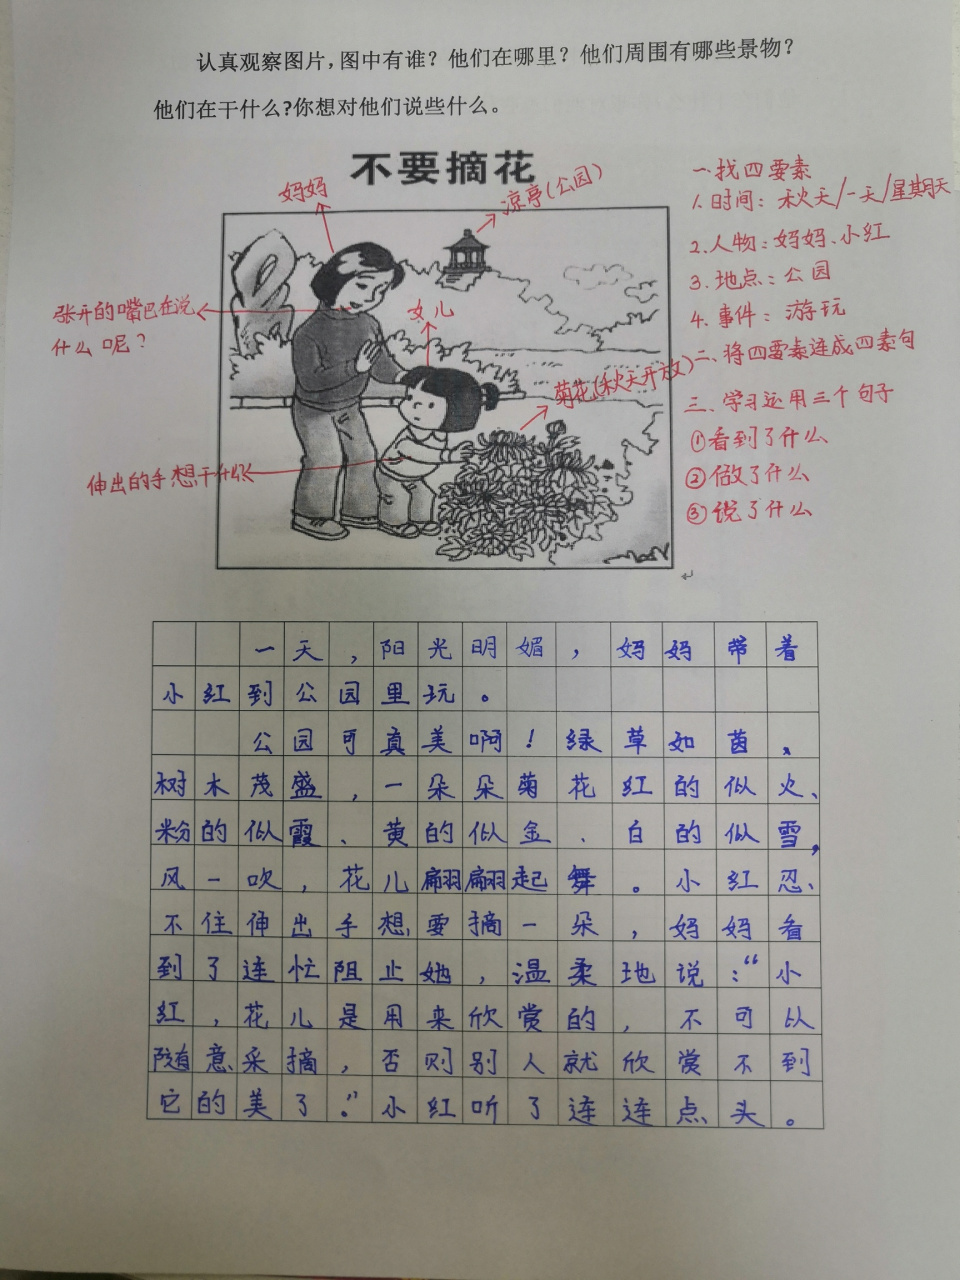 认真观察图片，图中有谁？他们在哪里？他们周围有哪些景物？
他们在干什么?你想对他们说些什么。
不要摘花
妈妈
凉亭(公园)
张开的嘴巴在说
什么呢？
女儿
菊花(秋天开放)
伸出的手想干什么
一找四要素
1.时间：秋天/一天/星期天
2.人物：妈妈、小红
3.地点：公园
4.事件：游玩
二、将四要素连成四素句
三、学习运用三个句子
①看到了什么
②做了什么
③说了什么
一天，阳光明媚，妈妈带着
小红到公园里玩。
公园可真美啊！绿草如茵，
树木茂盛，一朵朵菊花红的似火、
粉的似霞、黄的似金、白的似雪，
风一吹，花儿翩翩起舞。小红忍
不住伸出手想要摘一朵，妈妈看
到了连忙阻止她，温柔地说：“小
红，花儿是用来欣赏的，不可以
随意采摘，否则别人就欣赏不到
它的美了。”小红听了连连点头。